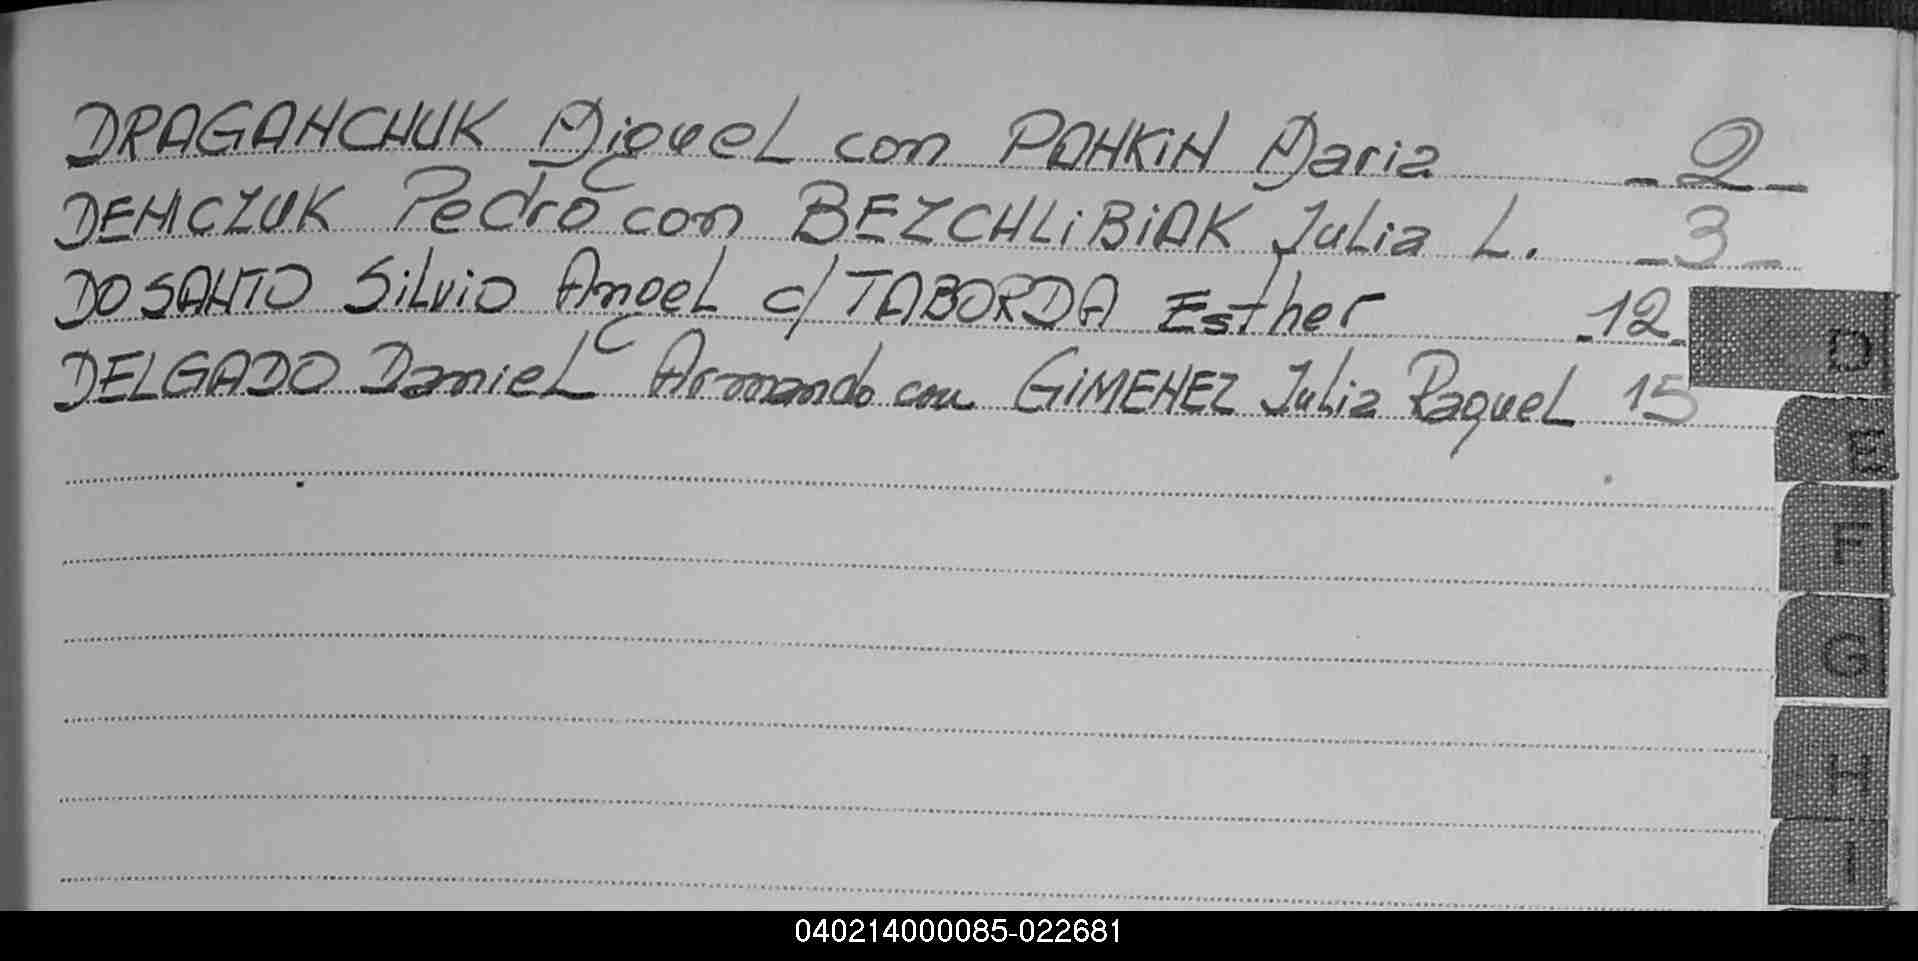 DRAGANCHUK Miguel con PANKiN Maria - 2 -
DEMCZUK Pedro con BEZCHLiBiAK Julia L. - 3 -
DOSANTO Silvio Angel c/ TABORDA Esther - 12 -
DELGADO Daniel Armando con GiMENEZ Julia Raquel 15
D
E
F
G
H
I
040214000085-022681